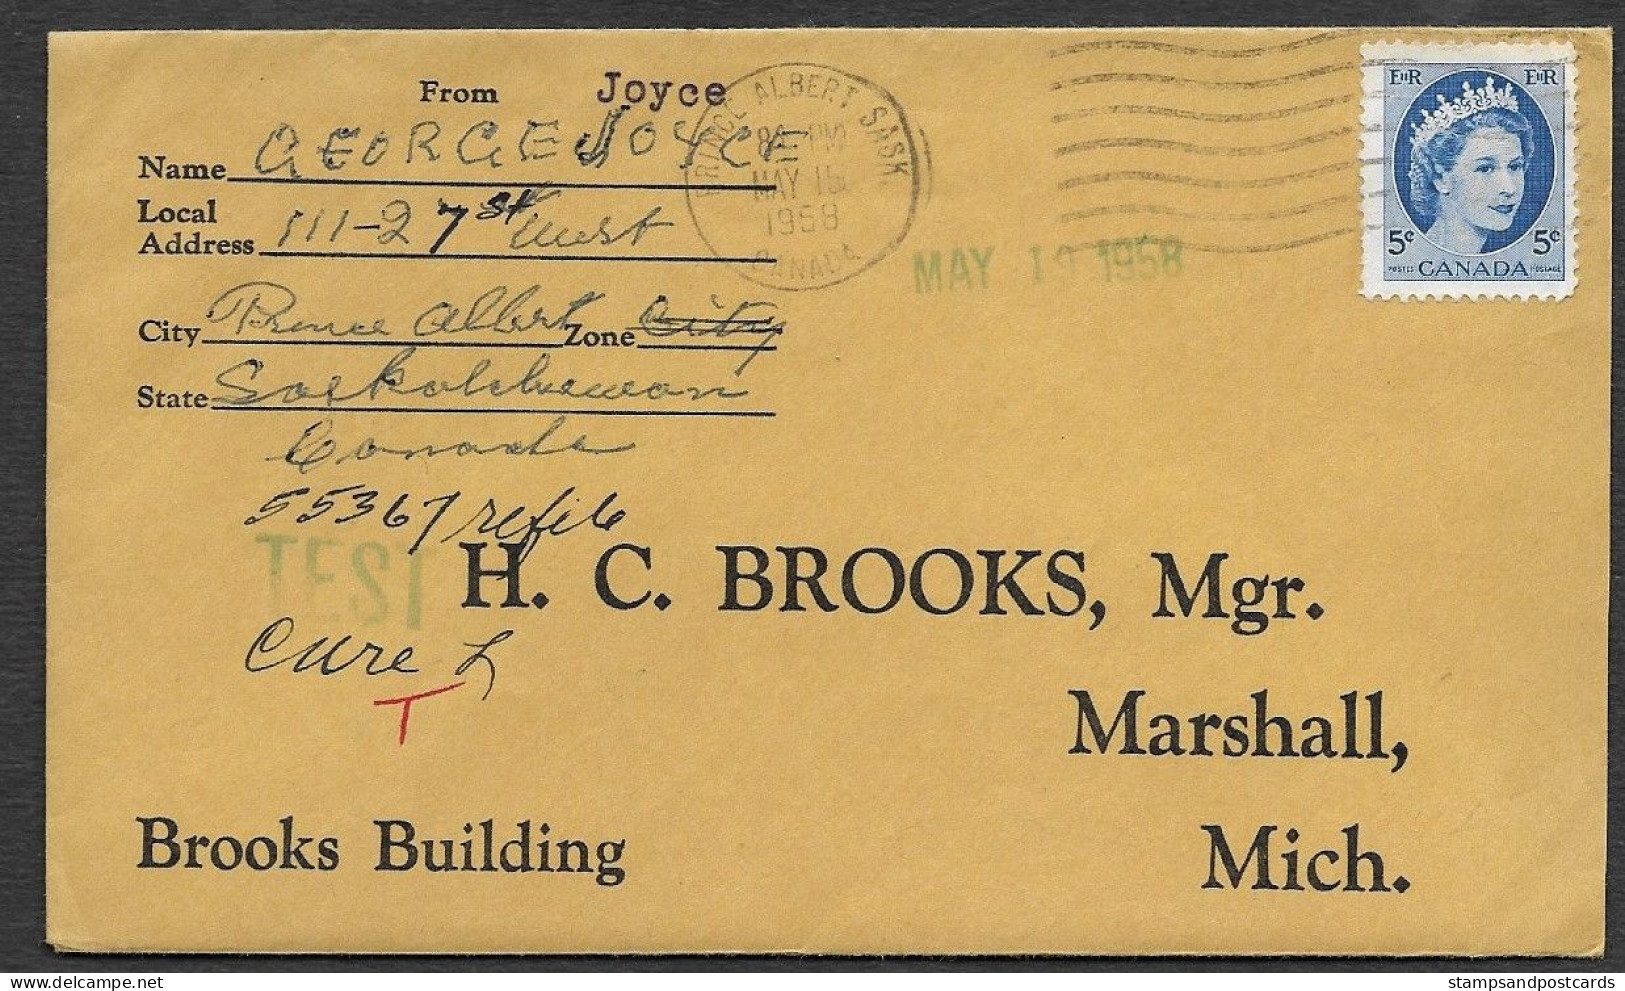 From Joyce
Name GEORGE JOYCE
Local
Address 111-27 st West
City Prince Albert Zone City
State Saskatchewan
Canada
55367 refile
TEST
Cure L
T
PRINCE ALBERT SASK.
PM
MAY 15
1958
CANADA
MAY 19 1958
EIIR EIIR
5¢ 5¢
POSTES CANADA POSTAGE
H. C. BROOKS, Mgr.
Marshall,
Brooks Building Mich.
stampsandpostcards